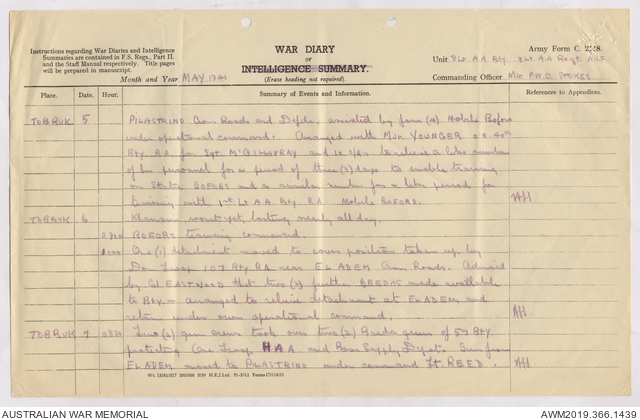 Instructions regarding War Diaries and Intelligence
Summaries are contained in F.S. Regs., Part II.
and the Staff Manual respectively. Title pages
will be prepared in manuscript.
WAR DIARY
OR
INTELLIGENCE SUMMARY.
(Erase heading not required).
Army Form C. 2118.
Month and Year MAY 1941
Unit 8 Lt A.A. Bty 3 Lt A.A. Regt. A.I.F.
Commanding Officer Maj. P.W.C. STOKES
Place. Date. Hour. Summary of Events and Information. References to Appendices.
TOBRUK 5 PILASTRINO Cross Roads and Defile, assisted by four (4) Mobile Bofors
under operational command. Arranged with Major YOUNGER O.C. 40th
Bty R.A. for Sgt McGILLIVRAY and 12 O/Rs to relieve a like number
of his personnel for a period of three (3) days to enable training
on Static BOFORS and a similar number for a like period for
training with 1st Lt A.A. Bty R.A. Mobile BOFORS.
TOBRUK 6 Khamsin wount yet, lasting nearly all day.
0900 BOFORS training commenced.
One (1) detachment moved to cover position taken up by
Don Troop 107 Bty RA near EL ADEM Cross Roads. Advised
by Col EASTWOOD that two (2) further BREDAS made available
to Bty. - arranged to relieve detachment at EL ADEM and
return under own operational command.
TOBRUK 7 0830 Two (2) gun crews took over two (2) Breda guns of 57 Bty
protecting One Troop H A A and Supply Depot. Gun from
EL ADEM moved to PILASTRINO under command Lt. REED.
AUSTRALIAN WAR MEMORIAL
AWM2019.366.1439